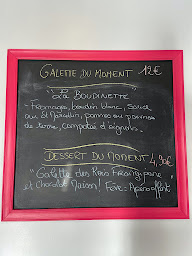 GALETTE DU MOMENT 12€
"La BOUDINETTE"
- Fromages, boudin blanc, sauce
au St Marcellin, pommes ou pommes
de terre, compotée d'oignons.
DESSERT DU MOMENT 4,90€
"Galette des Rois Frangipane"
et Chocolat Maison! Fève: Apéro offert